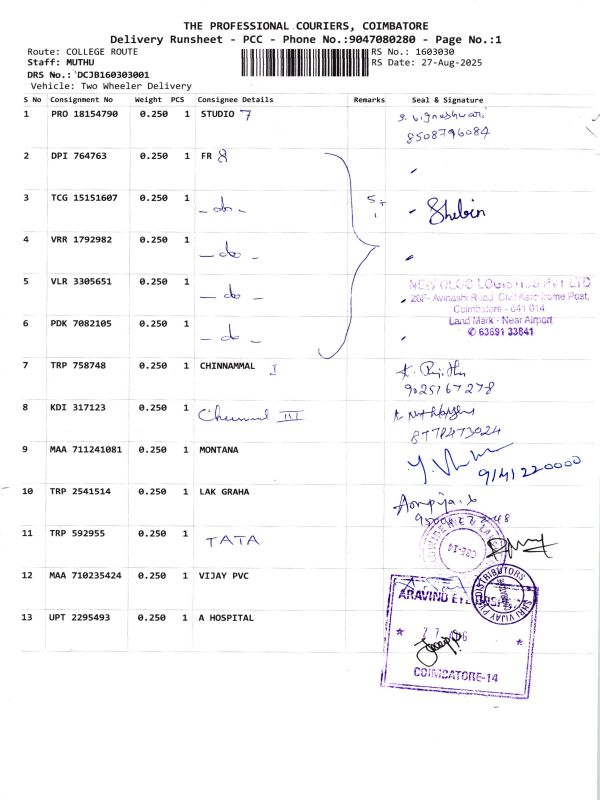 THE PROFESSIONAL COURIERS, COIMBATORE
Delivery Runsheet - PCC - Phone No.:9047080280 - Page No.:1
Route: COLLEGE ROUTE RS No.: 1603030
Staff: MUTHU RS Date: 27-Aug-2025
DRS No.: DCJB160303001
Vehicle: Two Wheeler Delivery
S No Consignment No Weight PCS Consignee Details Remarks Seal & Signature
1 PRO 18154790 0.250 1 STUDIO 7
8508796084
2 DPI 764763 0.250 1 FR 8
3 TCG 15151607 0.250 1 - do - 5+1 Shebin
4 VRR 1792982 0.250 1 - do -
5 VLR 3305651 0.250 1 - do -
NEW GLOBE LOGISTICS PVT LTD
Avinashi Road, Civil Aerodrome Post,
Coimbatore - 641 014
6 PDK 7082105 0.250 1 - do -
Land Mark - Near Airport
63691 33841
7 TRP 758748 0.250 1 CHINNAMMAL I
9025167278
8 KDI 317123 0.250 1 III
9 MAA 711241081 0.250 1 MONTANA
10 TRP 2541514 0.250 1 LAK GRAHA
11 TRP 592955 0.250 1 TATA
CBE-14
12 MAA 710235424 0.250 1 VIJAY PVC
DISTRIBUTORS
SHRI VIJAY
ARAVIND EYE
13 UPT 2295493 0.250 1 A HOSPITAL
COIMBATORE-14